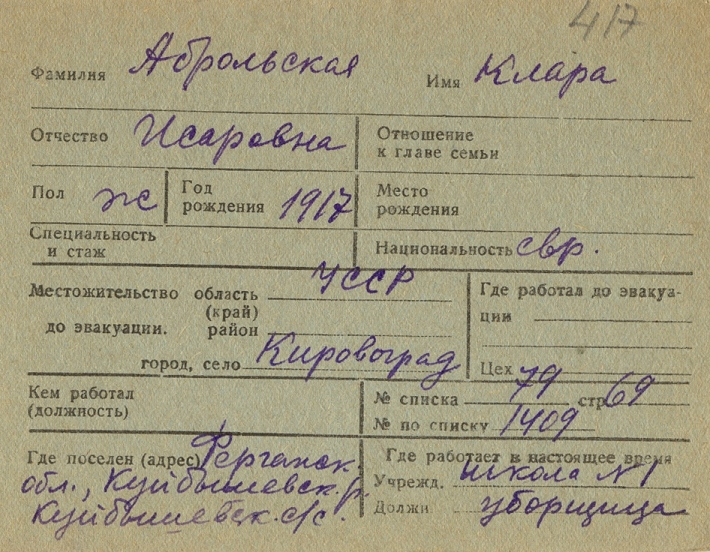 417
Фамилия Аброльская Имя Клара
Отчество Исаровна Отношение к главе семьи
Пол ж Год рождения 1917 Место рождения
Специальность и стаж Национальность евр.
Местожительство до эвакуации. область (край) УССР Где работал до эвакуации
район
город, село Кировоград Цех
Кем работал (должность) № списка 79 стр. 69
№ по списку 1409
Где поселен (адрес) Ферганск. Где работает в настоящее время
обл., Куйбышевск. р. Учрежд. школа N1
Куйбышевск. с/с. Должн. уборщица